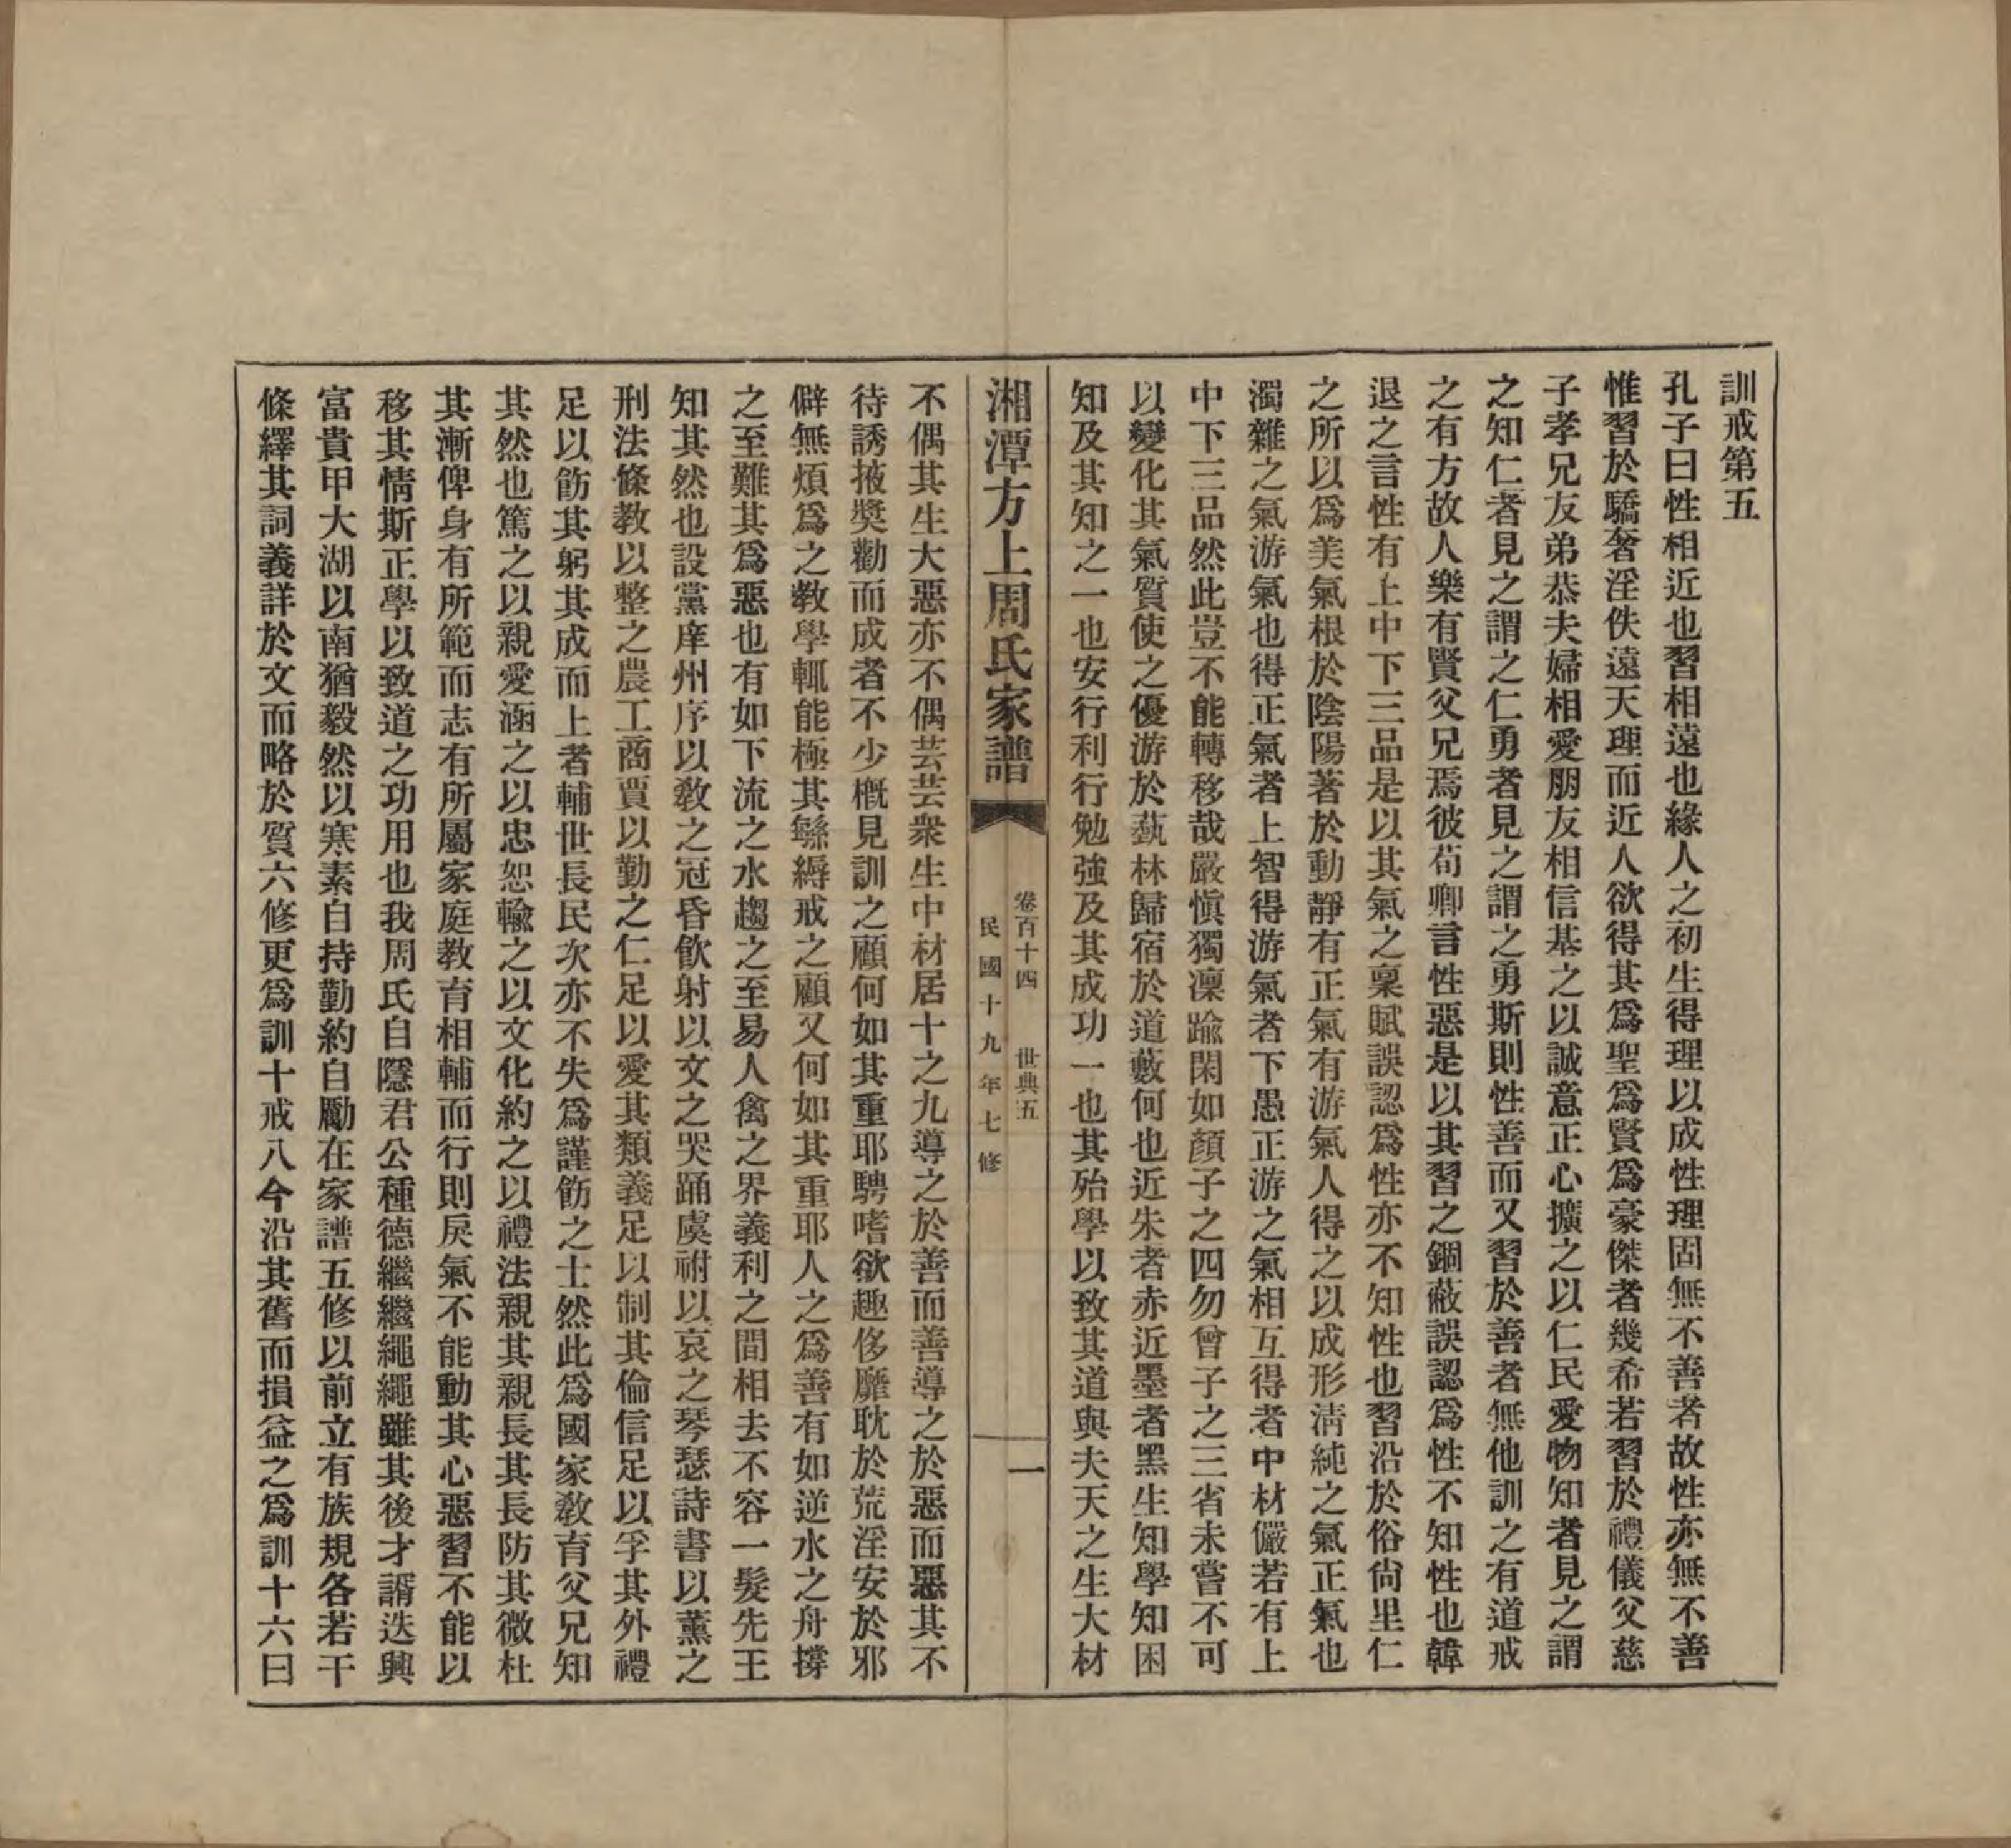 訓戒第五
孔子曰性相近也習相遠也緣人之初生得理以成性理固無不善者故性亦無不善
惟習於驕奢淫佚遠天理而近人欲得其爲聖爲賢爲豪傑者幾希若習於禮儀父慈
子孝兄友弟恭夫婦相愛朋友相信基之以誠意正心擴之以仁民愛物知者見之謂
之知仁者見之謂之仁勇者見之謂之勇斯則性善而又習於善者無他訓之有道戒
之有方故人樂有賢父兄焉彼荀卿言性惡是以其習之錮蔽誤認爲性不知性也韓
退之言性有上中下三品是以其氣之稟賦誤認爲性亦不知性也習沿於俗尙里仁
之所以爲美氣根於陰陽著於動靜有正氣有游氣人得之以成形淸純之氣正氣也
濁雜之氣游氣也得正氣者上智得游氣者下愚正游之氣相互得者中材儼若有上
中下三品然此豈不能轉移哉嚴愼獨凜踰閑如顏子之四勿曾子之三省未嘗不可
以變化其氣質使之優游於藝林歸宿於道藪何也近朱者赤近墨者黑生知學知困
知及其知之一也安行利行勉強及其成功一也其殆學以致其道與夫天之生大材
湘潭方上周氏家譜
卷百十四 世典五
民國十九年七修
一
不偶其生大惡亦不偶芸芸衆生中材居十之九導之於善而善導之於惡而惡其不
待誘掖獎勸而成者不少槪見訓之顧何如其重耶騁嗜欲趣侈靡耽於荒淫安於邪
僻無煩爲之敎學輒能極其緜縟戒之顧又何如其重耶人之爲善有如逆水之舟撐
之至難其爲惡也有如下流之水趨之至易人禽之界義利之間相去不容一髮先王
知其然也設黨庠州序以敎之冠昏飮射以文之哭踊虞祔以哀之琴瑟詩書以薰之
刑法條敎以整之農工商賈以勤之仁足以愛其類義足以制其倫信足以孚其外禮
足以飭其躬其成而上者輔世長民次亦不失爲謹飭之士然此爲國家敎育父兄知
其然也篤之以親愛涵之以忠恕輸之以文化約之以禮法親其親長其長防其微杜
其漸俾身有所範而志有所屬家庭敎育相輔而行則戾氣不能動其心惡習不能以
移其情斯正學以致道之功用也我周氏自隱君公種德繼繼繩繩雖其後才諝迭興
富貴甲大湖以南猶毅然以寒素自持勤約自勵在家譜五修以前立有族規各若干
條繹其詞義詳於文而略於質六修更爲訓十戒八今沿其舊而損益之爲訓十六曰